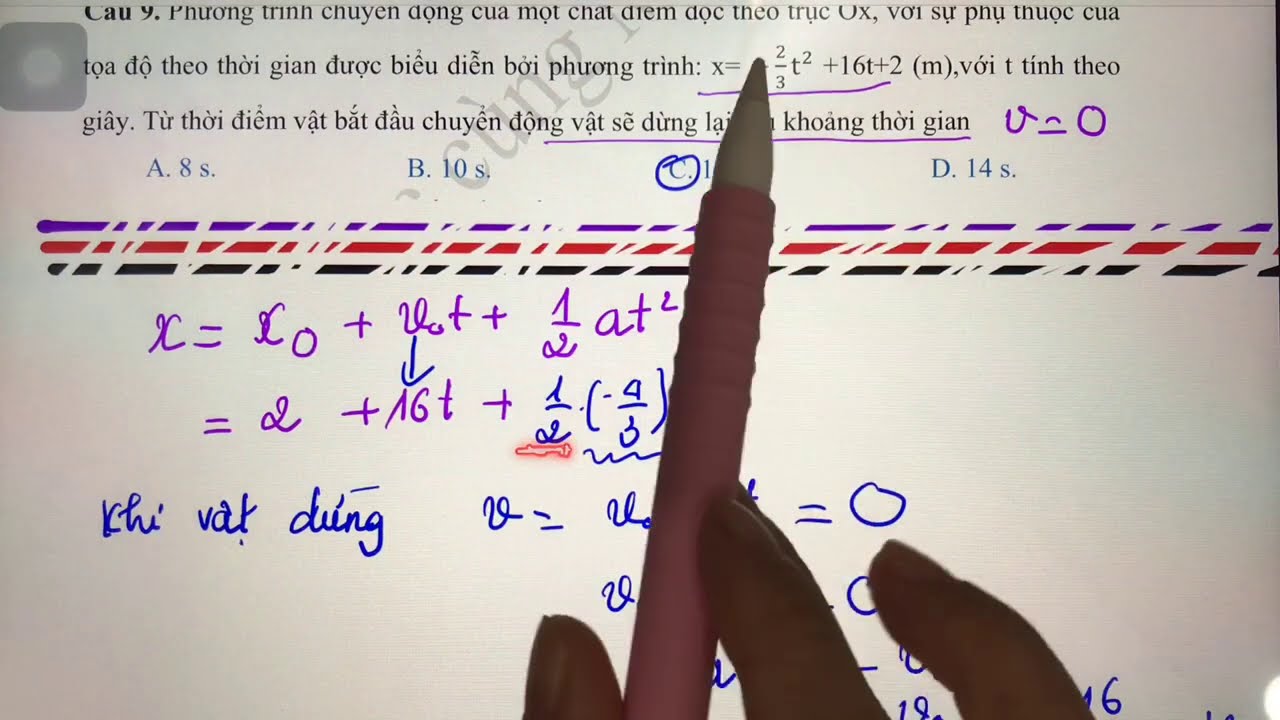 Câu 9. Phương trình chuyển động của một chất điểm dọc theo trục Ox, với sự phụ thuộc của
tọa độ theo thời gian được biểu diễn bởi phương trình: x= - 2/3 t² +16t+2 (m),với t tính theo
giây. Từ thời điểm vật bắt đầu chuyển động vật sẽ dừng lại khoảng thời gian v = 0
A. 8 s. B. 10 s. C. 1 D. 14 s.
cùng
x = x₀ + v₀t + 1/2 at²
= 2 + 16t + 1/2 . (-4/3)
Khi vật dừng v = v₀ = 0
v 0
16